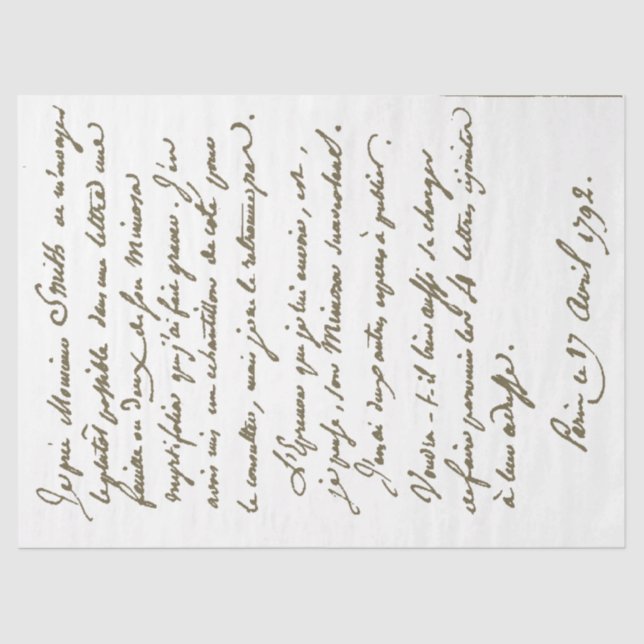 Je prie Monsieur Smith de m'envoyer
le plutôt possible dans une lettre une
feuille ou deux de son Mimosa
mistifiée que j'ai fait graver. J'en
avois mis un echantillon de coté pour
le consulter, mais je ne le retrouve pas.
L'Epreuve que je lui envoie, est,
je pense, son Mimosa
J'en ai deux autres especes à publier.
Voudra-t-il bien aussi se charger
de faire parvenir les 4 lettres cy jointes
à leur adresse.
Paris ce 17 Avril 1792.